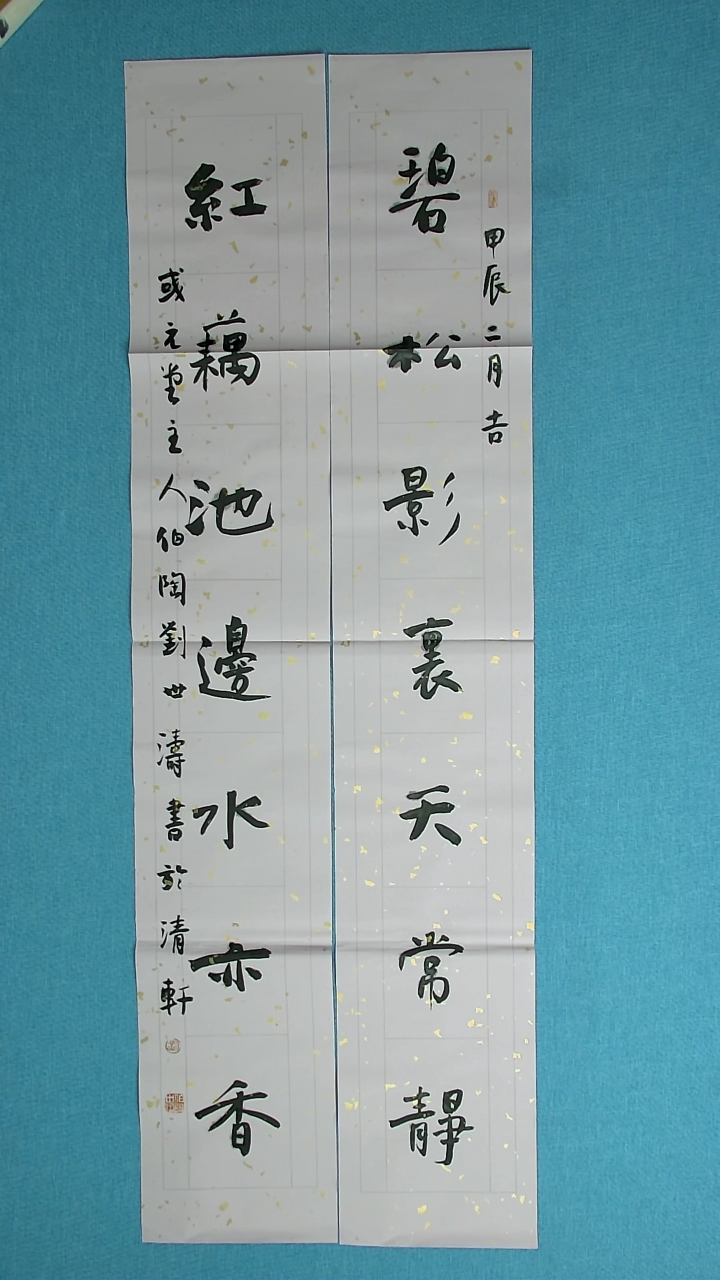 甲辰二月吉
碧松影裏天常靜
紅藕池邊水亦香
或元堂主人伯陶劉世濤書於清軒